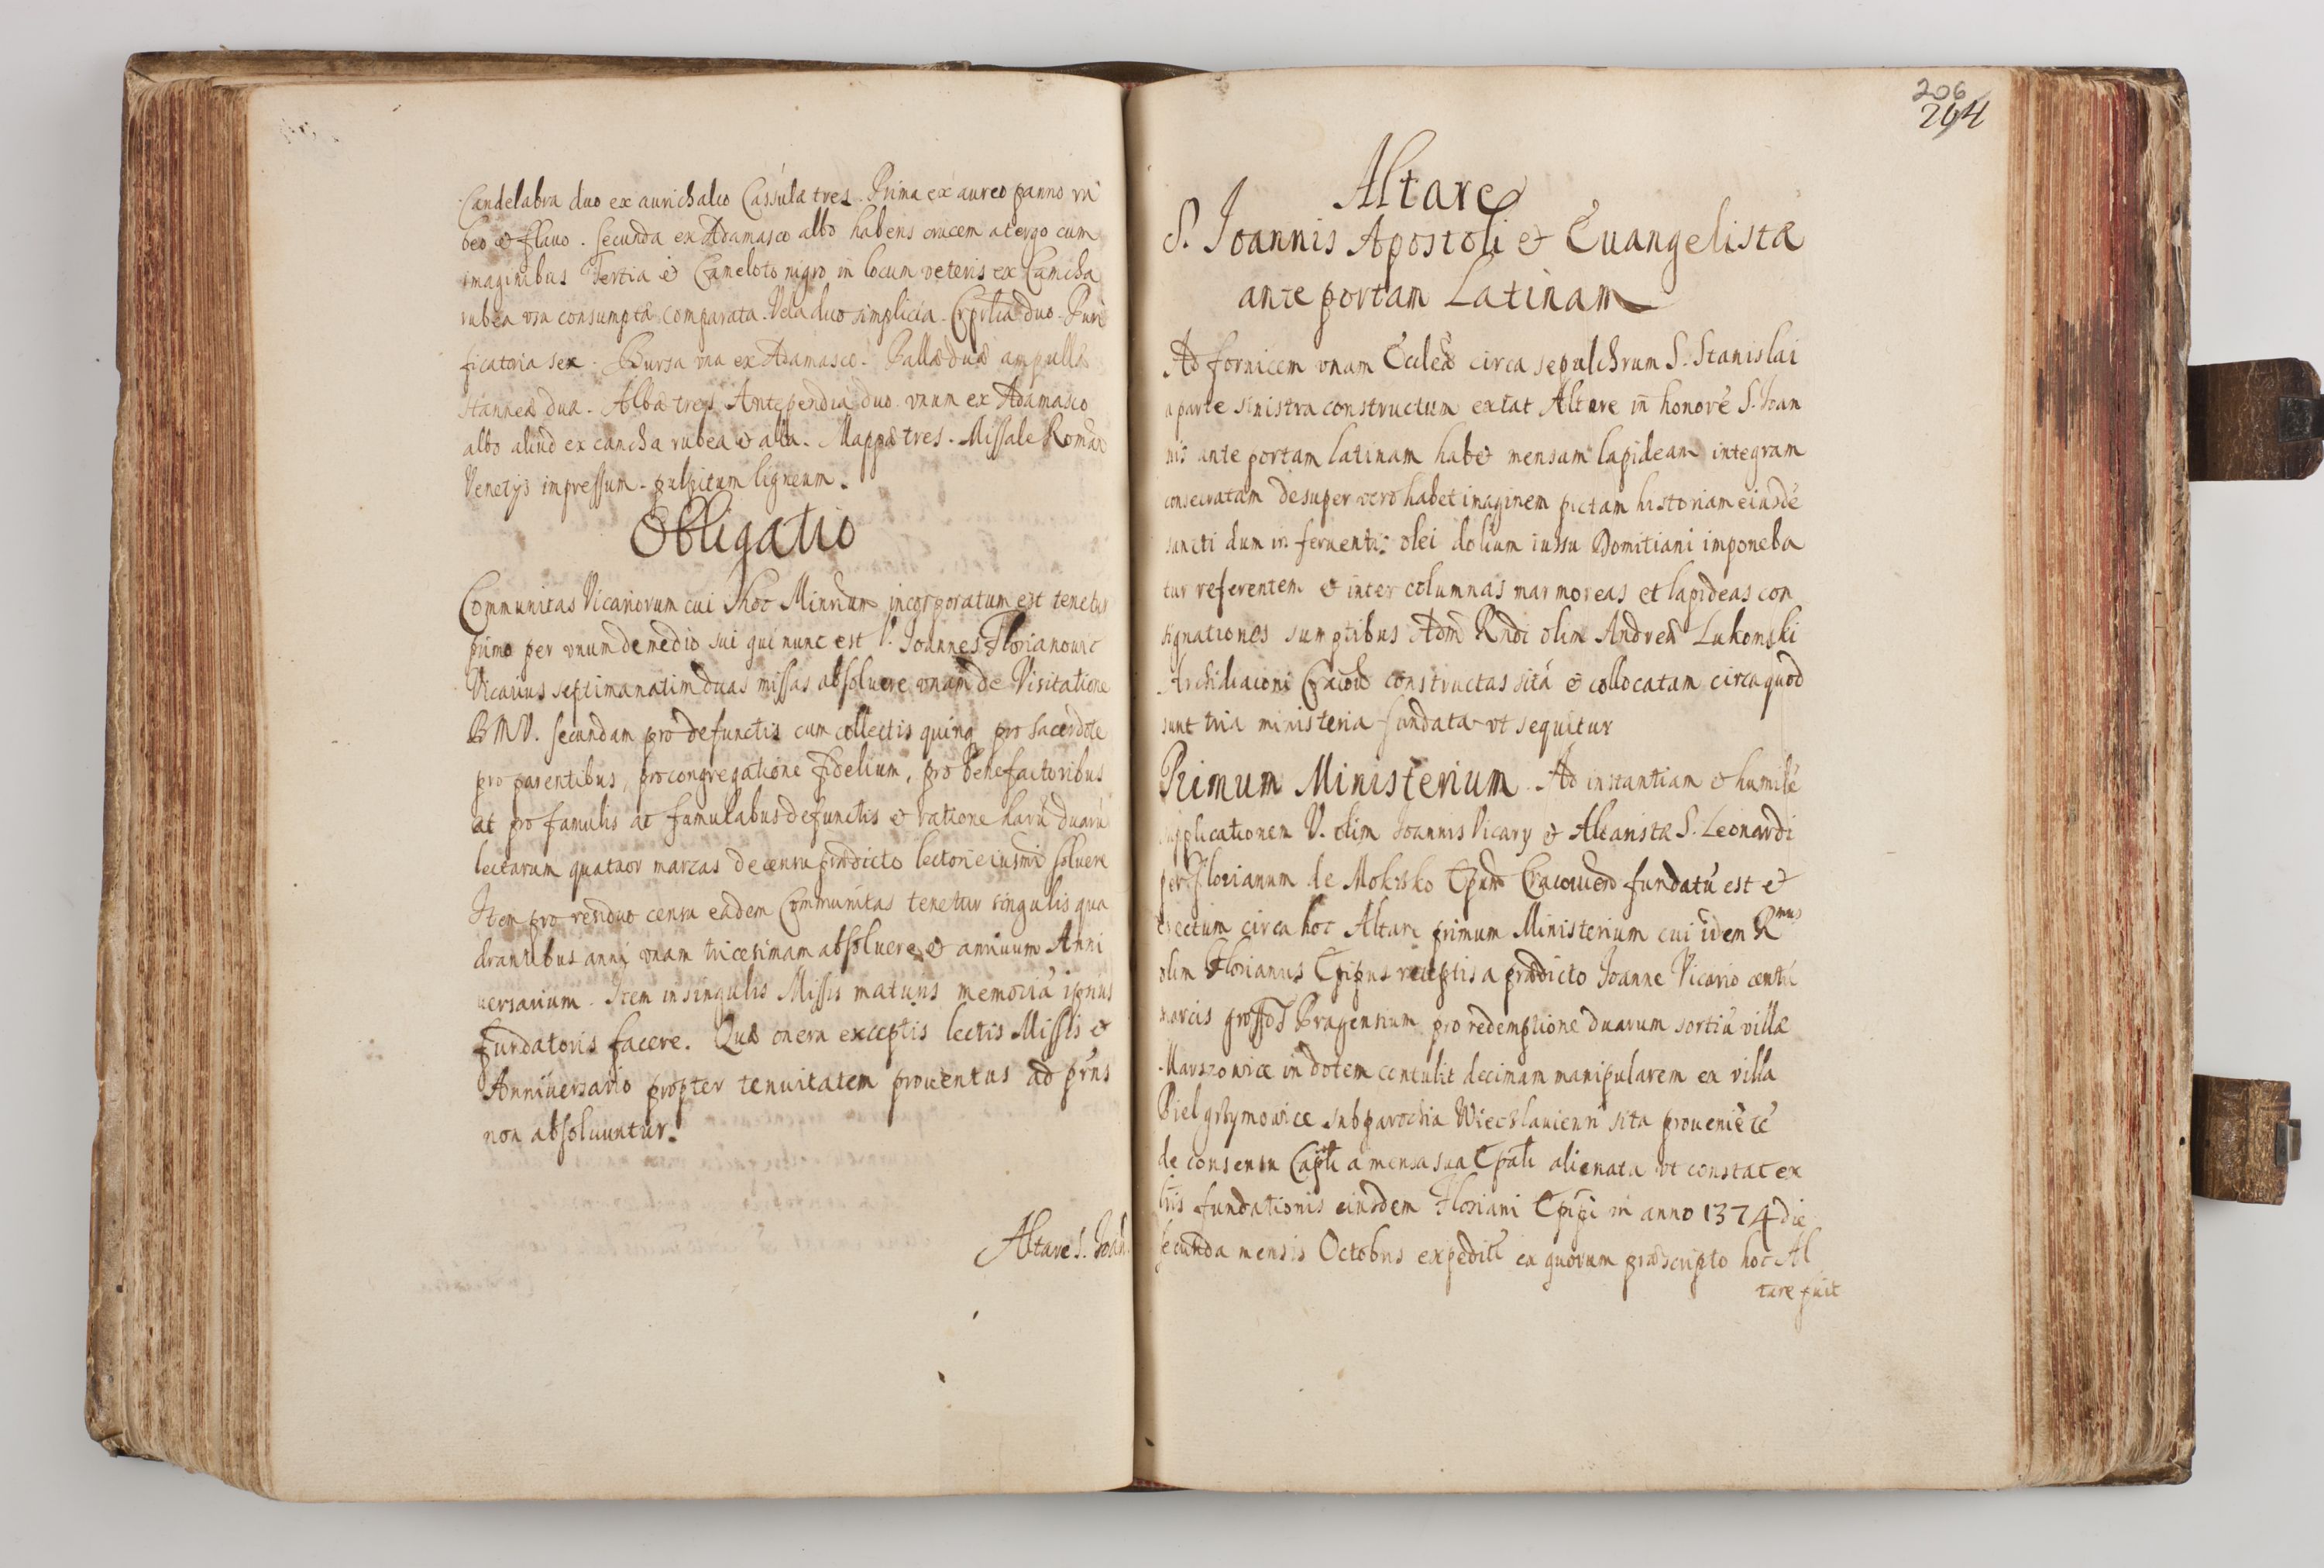 Candelabra duo ex aurichalco Cassula tres. Prima ex aureo panno ru
beo et flauo. Secunda ex Adamasco albo habens crucem a tergo cum
imaginibus Tertia è Cameloto nigro in locum veteris ex Camcha
rubea usu consumptæ comparata. Vela duo simplicia. Corpilia duo. Puri
ficatoria sex. Bursa una ex Adamasco. Pallæ duæ ampullæ
stanneæ duæ. Albæ tres Antependia duo unum ex Adamasco
albo aliud ex camcha rubea et alba. Mappæ tres. Missale Roman
Venetijs impressum. pulpitum ligneum.
Obligatio
Communitas Vicariorum cui hoc Minrium incorporatum est tenetur
primo per vnum de medio sui qui nunc est V. Joannes Florianouic
Vicarius septimanatim duas missas absoluere vnam de Visitatione
BMV. secundam pro defunctis cum collectis quinq pro sacerdote
pro parentibus, pro congregatione fidelium, pro benefactoribus
ac pro famulis ac famulabus defunctis et ratione harū duarū
lectarum quatuor marcas de censu prædicto lectori eiusmdi soluere
Item pro residuo censu eadem Communitas tenetur singulis qua
drantibus anni vnam tricesimam absoluere et annuum Anni
uersarium. Item in singulis Missis maturis memoriā ipsius
fundatoris facere. Quæ onera exceptis lectis Missis et
Anniuersario propter tenuitatem prouentus ad prns
non absoluuntur.
Altare S. Joan
206
264
Altare
S. Joannis Apostoli et Euangelistæ
ante portam Latinam
Ad fornicem vnam Ecclæ circa sepulchrum S. Stanislai
a parte sinistra constructum extat Altare in honorē S. Joan
nis ante portam latinam habet mensam lapideam integram
consecratam desuper vero habet imaginem pictam historiam eiusdē
sancti dum in feruentis olei dolium iussu Domitiani imponeba
tur referentem et inter columnas marmoreas et lapideas con
signationes sumptibus Adm Rndi olim Andreæ Lukomski
Archidiaconi Cracoud constructas sitā et collocatam circa quod
sunt tria ministeria fundata vt sequitur
Primum Ministerium. Ad instantiam et humilē
supplicationem V. olim Joannis Vicarij et Altaristæ S. Leonardi
per Florianum de Mokrsko Epum Cracouien fundatū est et
erectum circa hoc Altare primum Ministerium cui idem Rmus
olim Florianus Epipus receptis a prædicto Joanne Vicario centū
marcis gross Pragensium pro redemptione duarum sortiū villæ
Marszowice in dotem contulit decimam manipularem ex villa
Pielgrzymowice sub parochia Wieczlauien sita prouenietē
de consensu Capli a mensa sua Epali alienata vt constat ex
lris fundationis eiusdem Floriani Epipi in anno 1374 die
secunda mensis Octobris expeditis ex quorum præscripto hoc Al
tare fuit